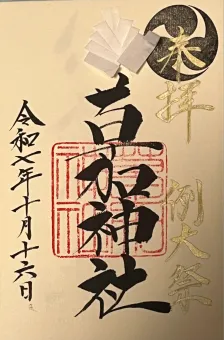 奉拝
例大祭
草加神社
令和七年十月十六日